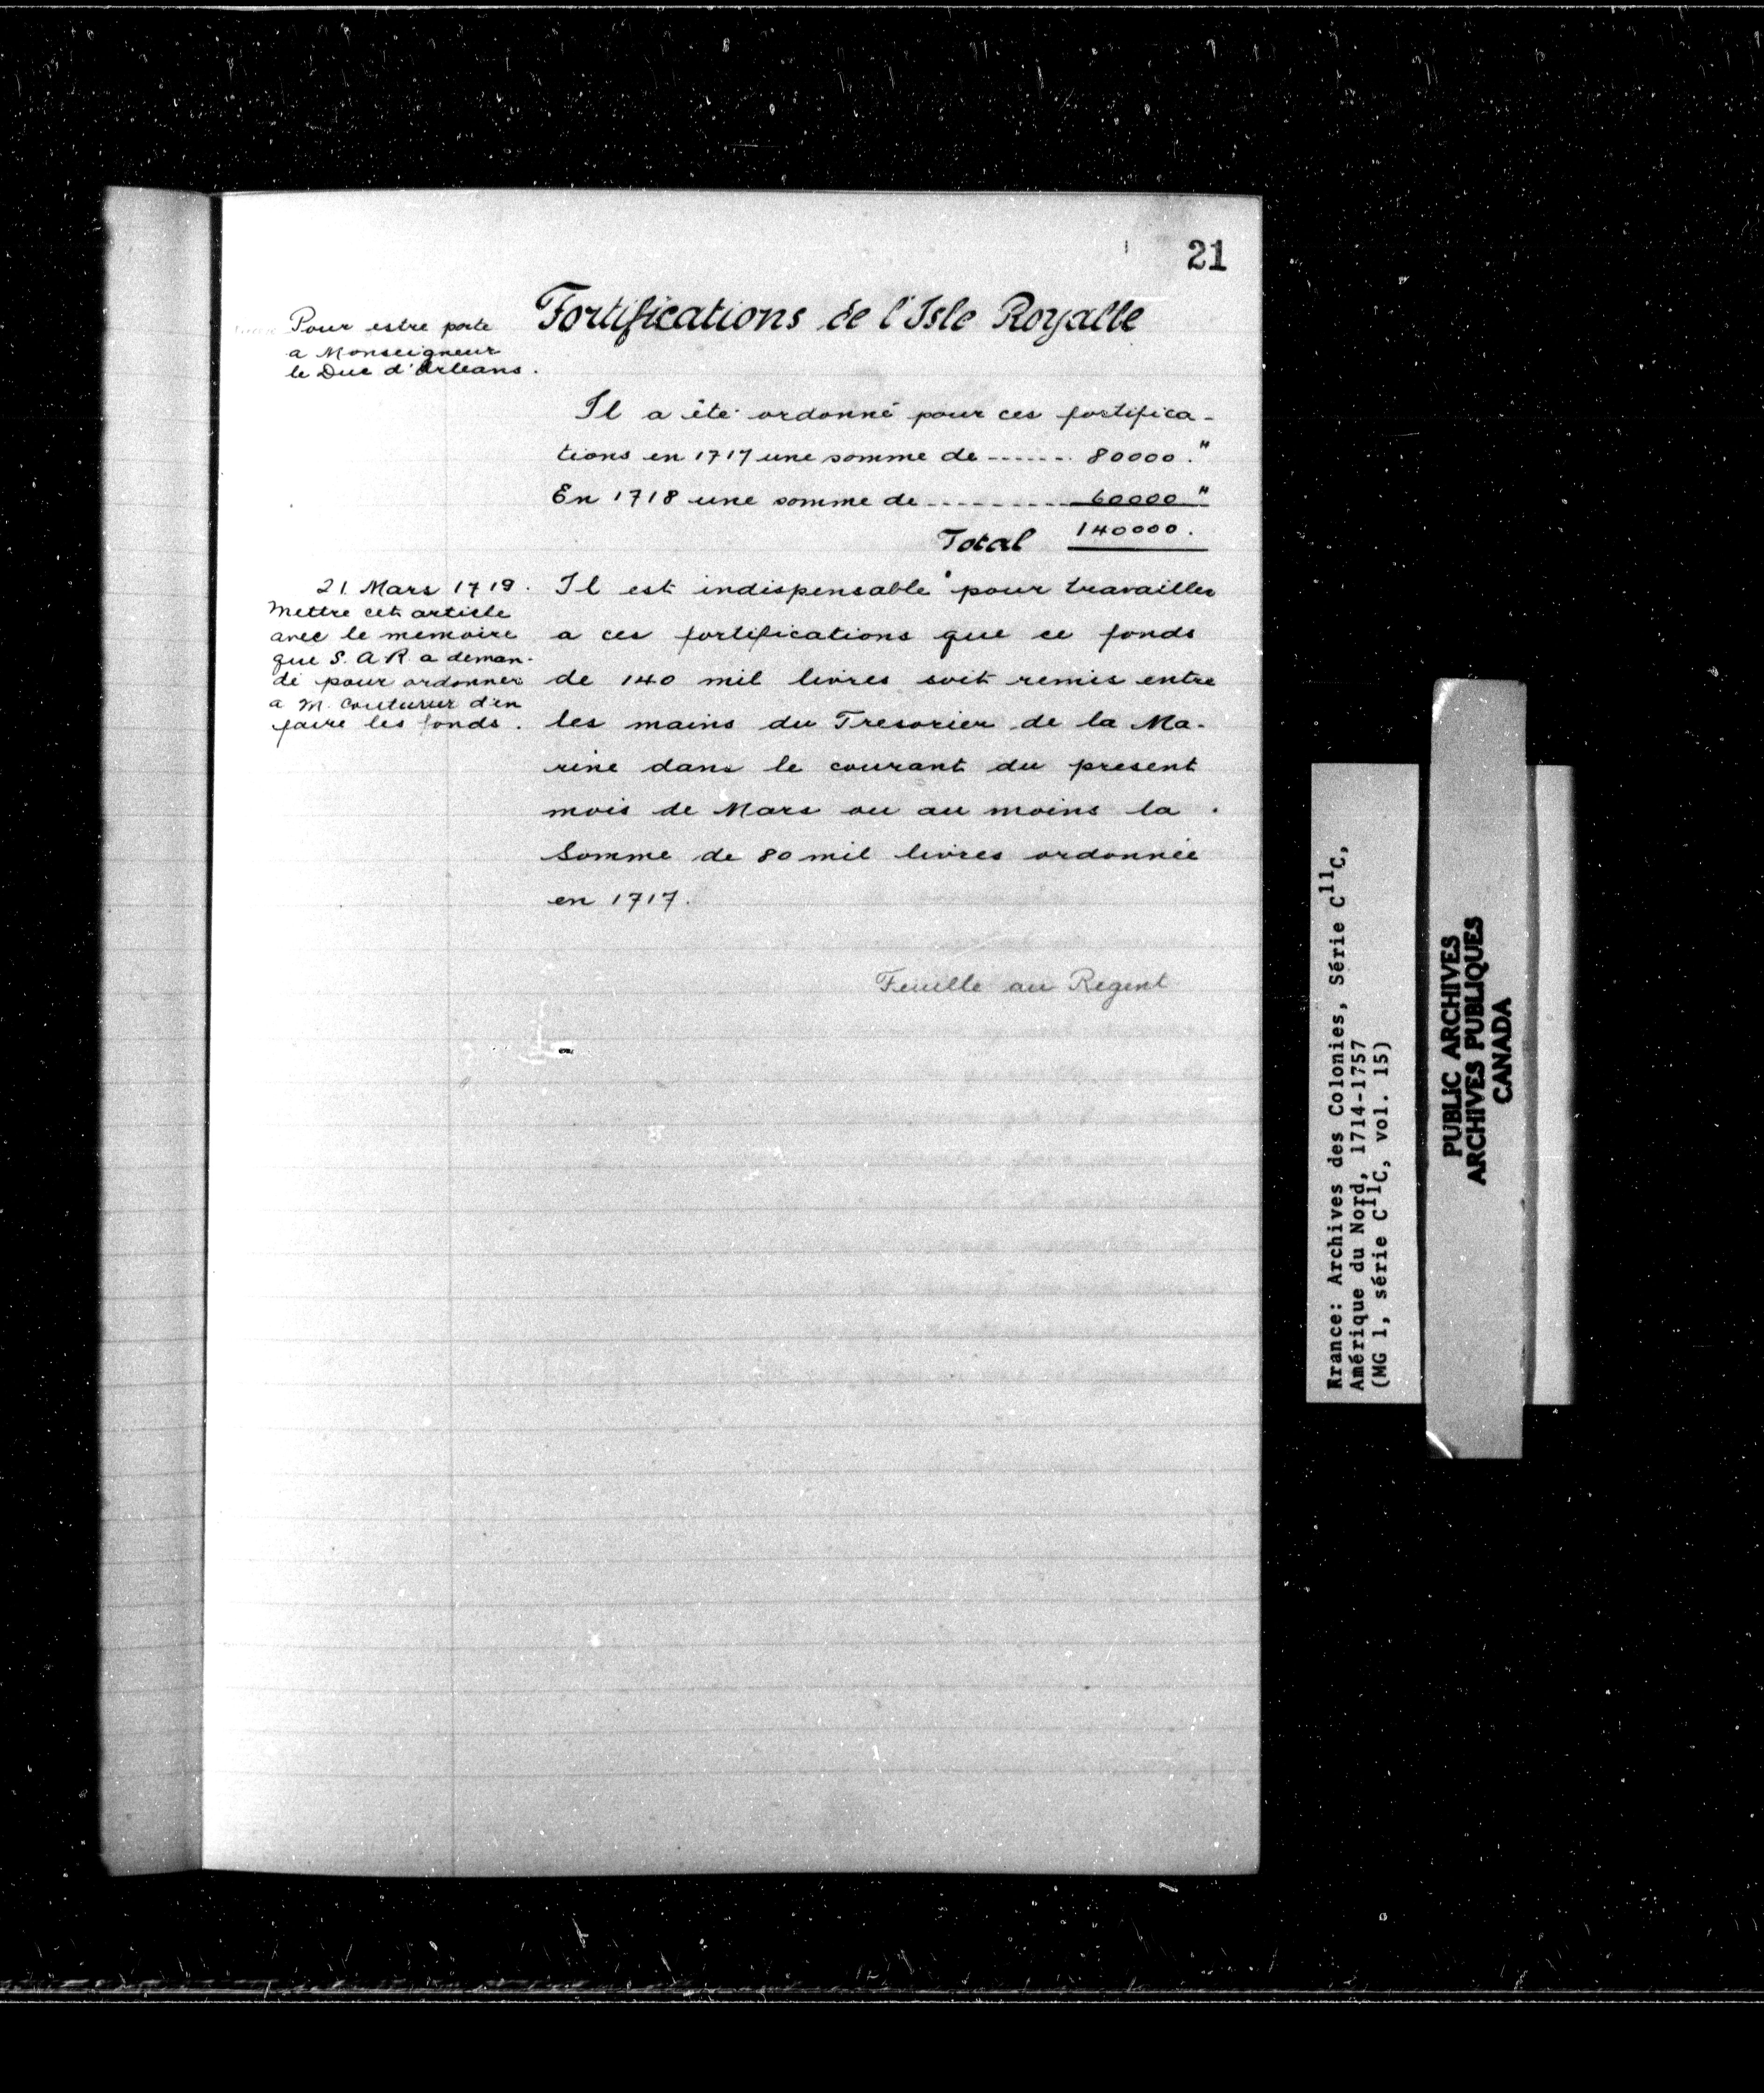 21
Fortifications de l'Isle Royalle
Pour estre porte
a Monseigneur
le Duc d'Orleans.
Il a été ordonné pour ces fortifica-
tions en 1717 une somme de ------- 80000."
En 1718 une somme de ---------- 60000 "
Total 140000.
21. Mars 1719.
Mettre cet article
avec le memoire
que S. A. R. a deman-
dé pour ordonner
a M. Couturier d'en
faire les fonds.
Il est indispensable pour travailler
a ces fortifications que ce fonds
de 140 mil livres soit remis entre
les mains du Tresorier de la Ma-
rine dans le courant du present
mois de Mars ou au moins la
Somme de 80 mil livres ordonnée
en 1717.
Feuille au Regent
Krance: Archives des Colonies, Série C11C,
Amérique du Nord, 1714-1757
(MG 1, série C11C, vol. 15)
PUBLIC ARCHIVES
ARCHIVES PUBLIQUES
CANADA